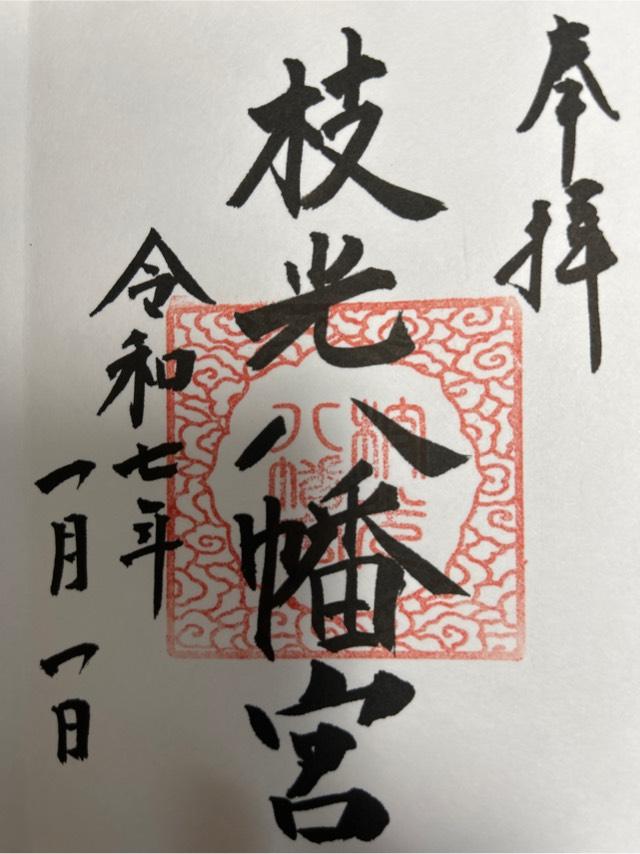 奉拝
枝光八幡宮
令和七年
一月一日